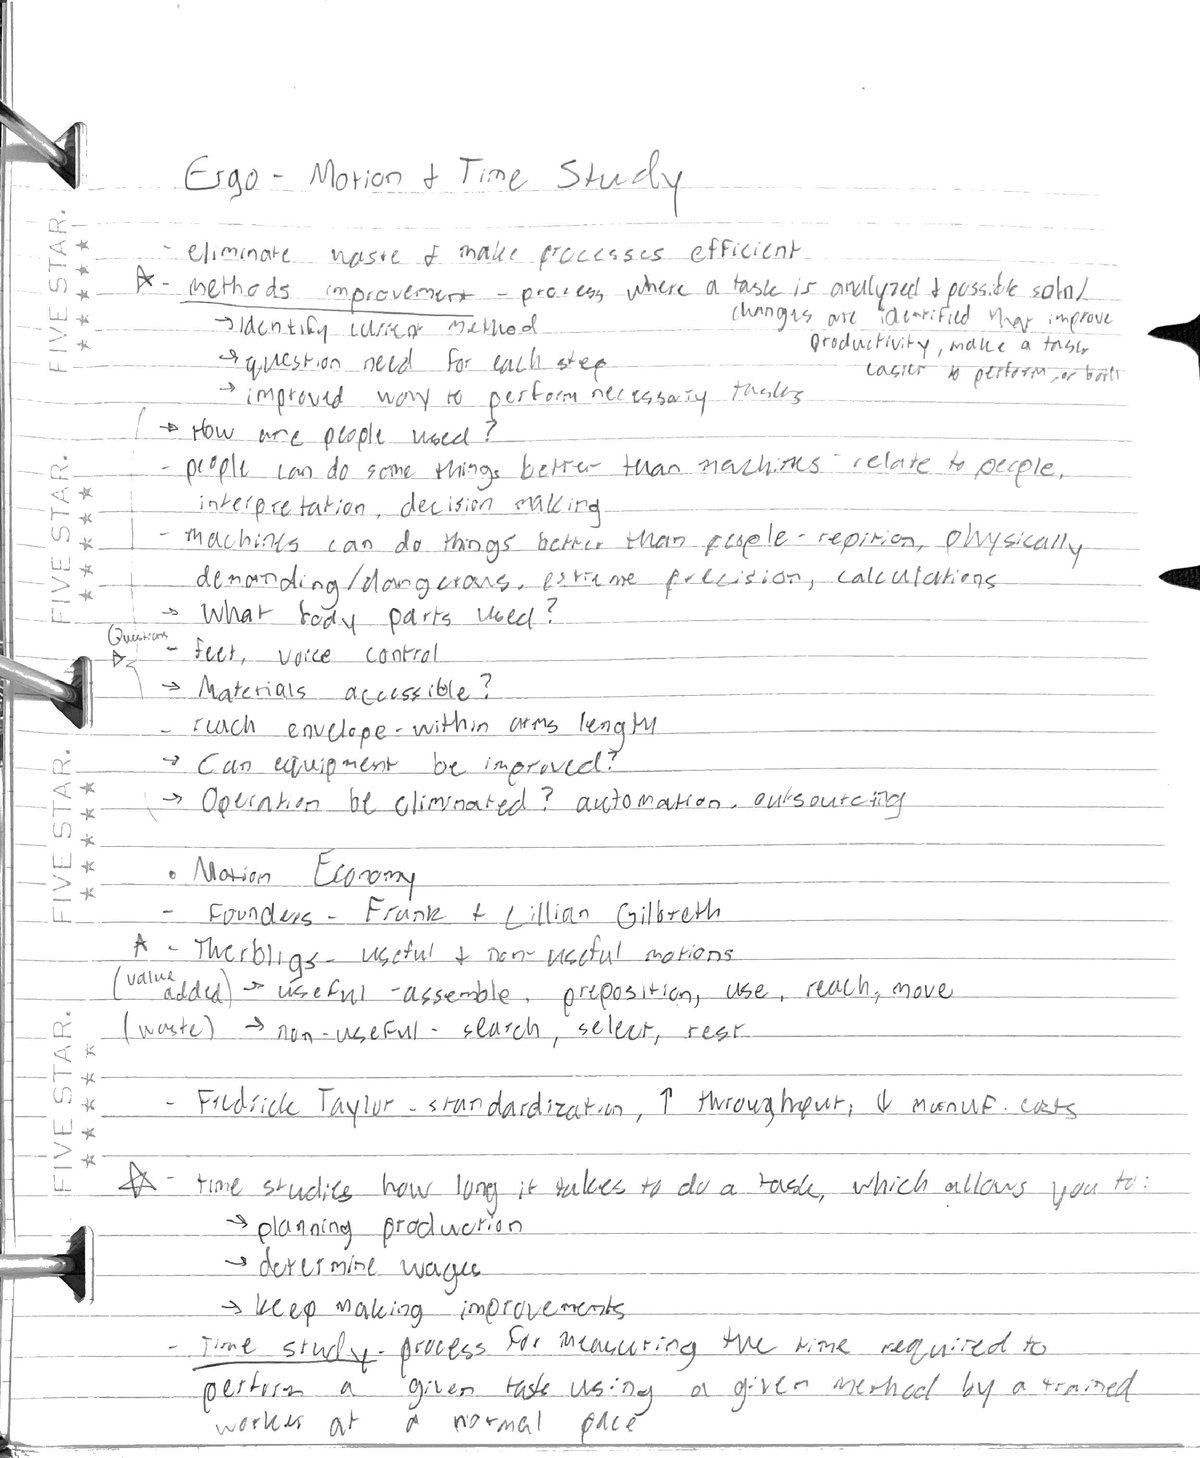 Ergo - Motion & Time Study
- eliminate waste & make processes efficient
☆ - methods improvement - process where a task is analyzed & possible soln/
changes are identified that improve
productivity, make a task
easier to perform, or both
→ Identify current method
→ question need for each step
→ improved way to perform necessary tasks
→ How are people used?
- people can do some things better than machines - relate to people,
interpretation, decision making
- machines can do things better than people - repition, physically
demanding/dangerous, extreme precision, calculations
→ What body parts used?
Questions
☆
- feet, voice control
→ Materials accessible?
- reach envelope - within arms length
→ Can equipment be improved?
→ Operation be eliminated? automation, outsourcing
• Motion Economy
- Founders - Frank & Lillian Gilbreth
☆ - Therbligs - useful & non-useful motions
(value added) → useful - assemble, preposition, use, reach, move
(waste) → non-useful - search, select, rest
- Fredrick Taylor - standardization, ↑ throughput, ↓ manuf. costs
☆ - time studies how long it takes to do a task, which allows you to:
→ planning production
→ determine wages
→ keep making improvements
- Time study - process for measuring the time required to
perform a given task using a given method by a trained
worker at a normal pace
FIVE STAR.
★★★★★
FIVE STAR.
★★★★★
FIVE STAR.
★★★★★
FIVE STAR.
★★★★★